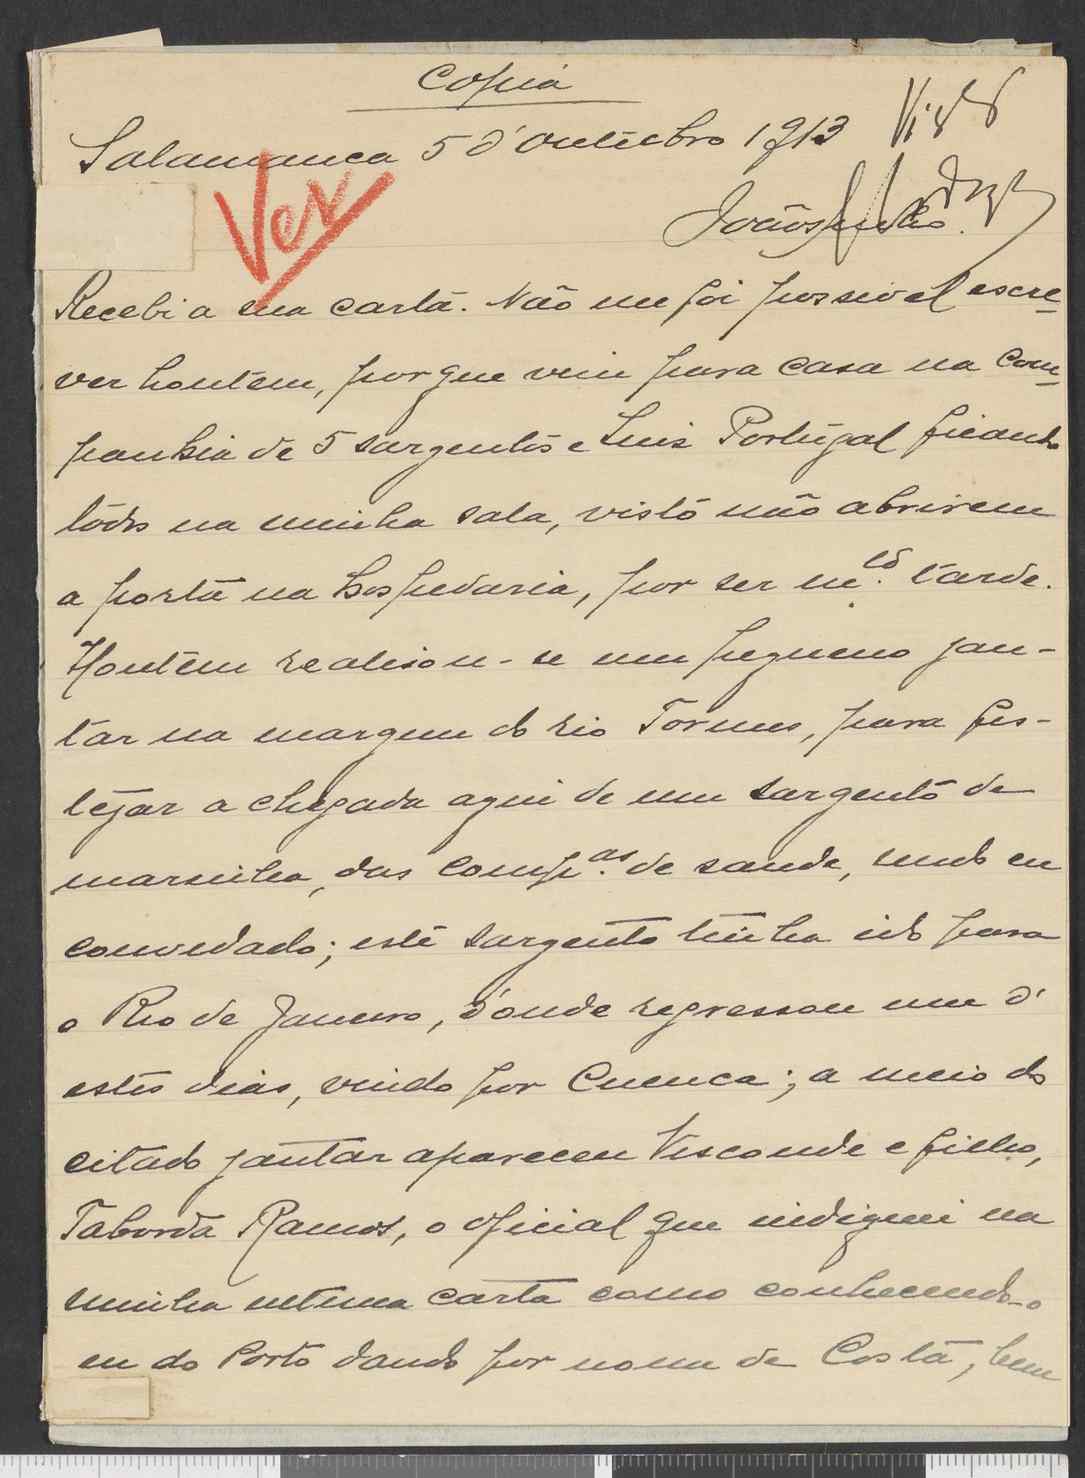 Copia
Salamanca 5 d'outubro 1913
Ver
Recebi a sua carta. Não me foi possivel escre-
ver hontem, porque vim para casa na com-
panhia de 5 sargentos e Luis Portugal ficando
todos na minha sala, visto não abrirem
a porta na hospedaria, por ser m.to tarde.
Hontem realisou-se um pequeno jan-
tar na margem do rio Tormes, para fes-
tejar a chegada aqui de um sargento de
marinha, das comp.as de saude, sendo eu
convidado; este sargento tinha ido para
o Rio de Janeiro, d'onde regressou um d'
estes dias, vindo por Cuenca; a meio do
citado jantar apareceu Visconde e filho,
Taborda Ramos, o oficial que indiquei na
minha ultima carta como conhecendo-o
eu do Porto dando por nome de Costa, bem